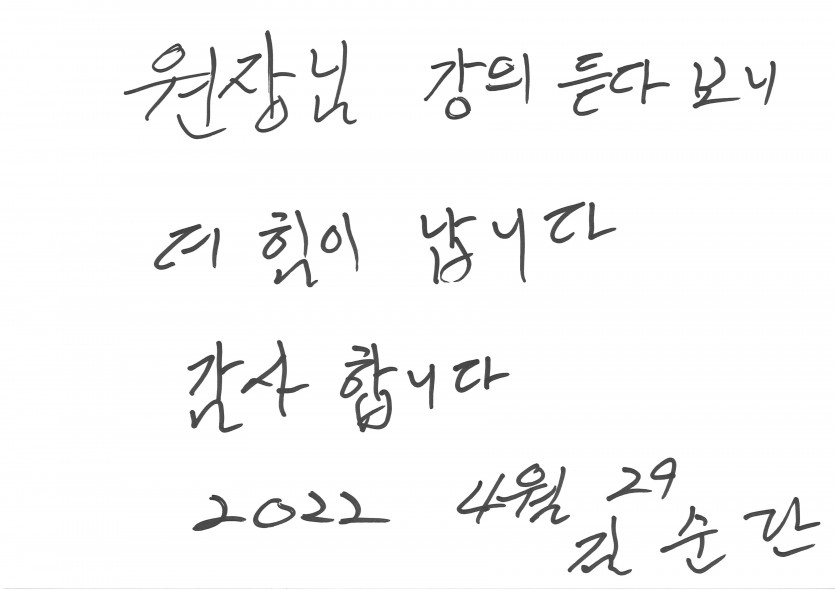 원장님 강의 듣다 보니
더 힘이 납니다
감사 합니다
2022 4월 29
김순단